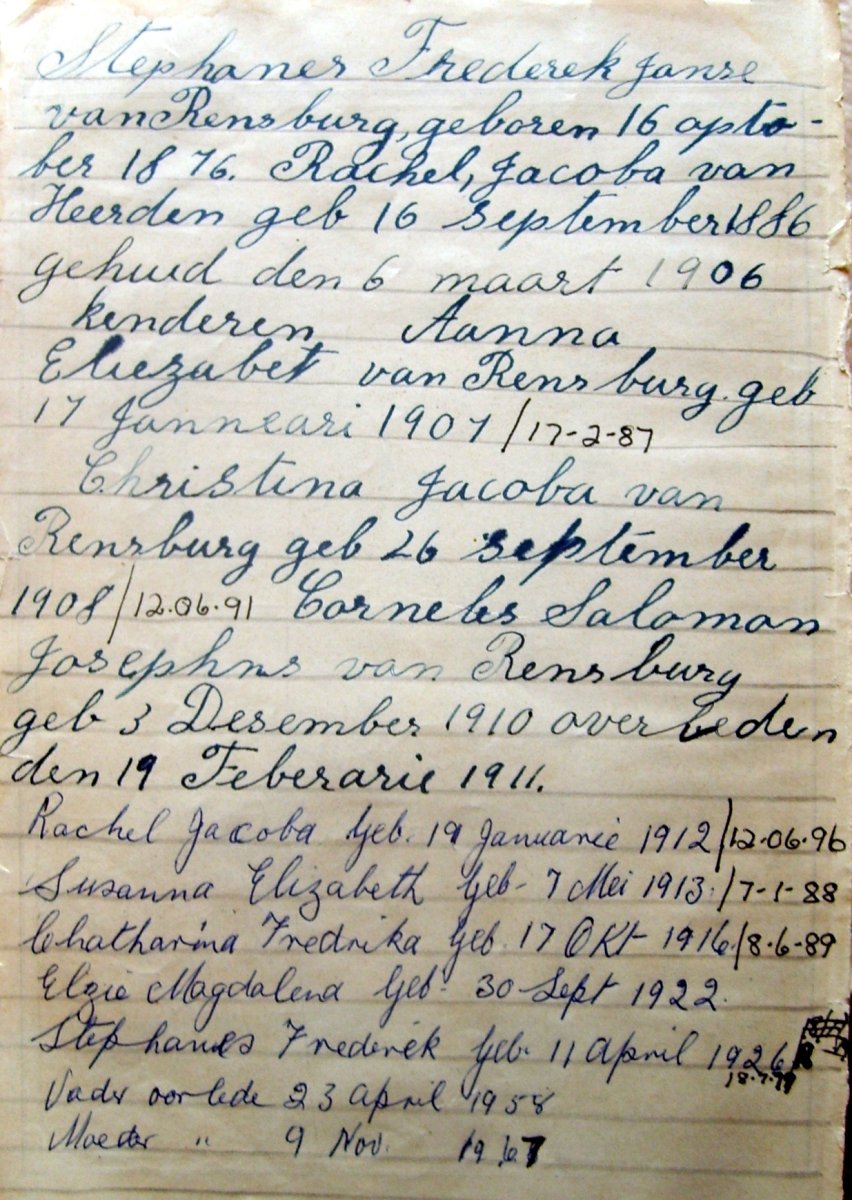 Stephanes Frederek Janse
van Rensburg, geboren 16 opto-
ber 1876. Rachel, Jacoba van
Heerden geb 16 september 1886
gehuud den 6 maart 1906
kenderen Aanna
Eliezabet van Rensburg. geb
17 Janneari 1907 /17-2-87
Christina Jacoba van
Rensburg geb 26 september
1908/12.06.91 Cornelis Saloman
Josephns van Rensburg
geb 3 Desember 1910 overleden
den 19 Feberarie 1911.
Rachel Jacoba Geb. 19 Januarie 1912/12.06.96
Susanna Elizabeth Geb- 7 Mei 1913./7-1-88
Chatharina Fredrika Geb. 17 Okt 1916./8-6-89
Elzie Magdalena Geb- 30 Sept 1922.
Stephanes Frederék Geb. 11 April 1926
18.7.
Vader oorlede 23 April 1958
Moeder " 9 Nov. 1967